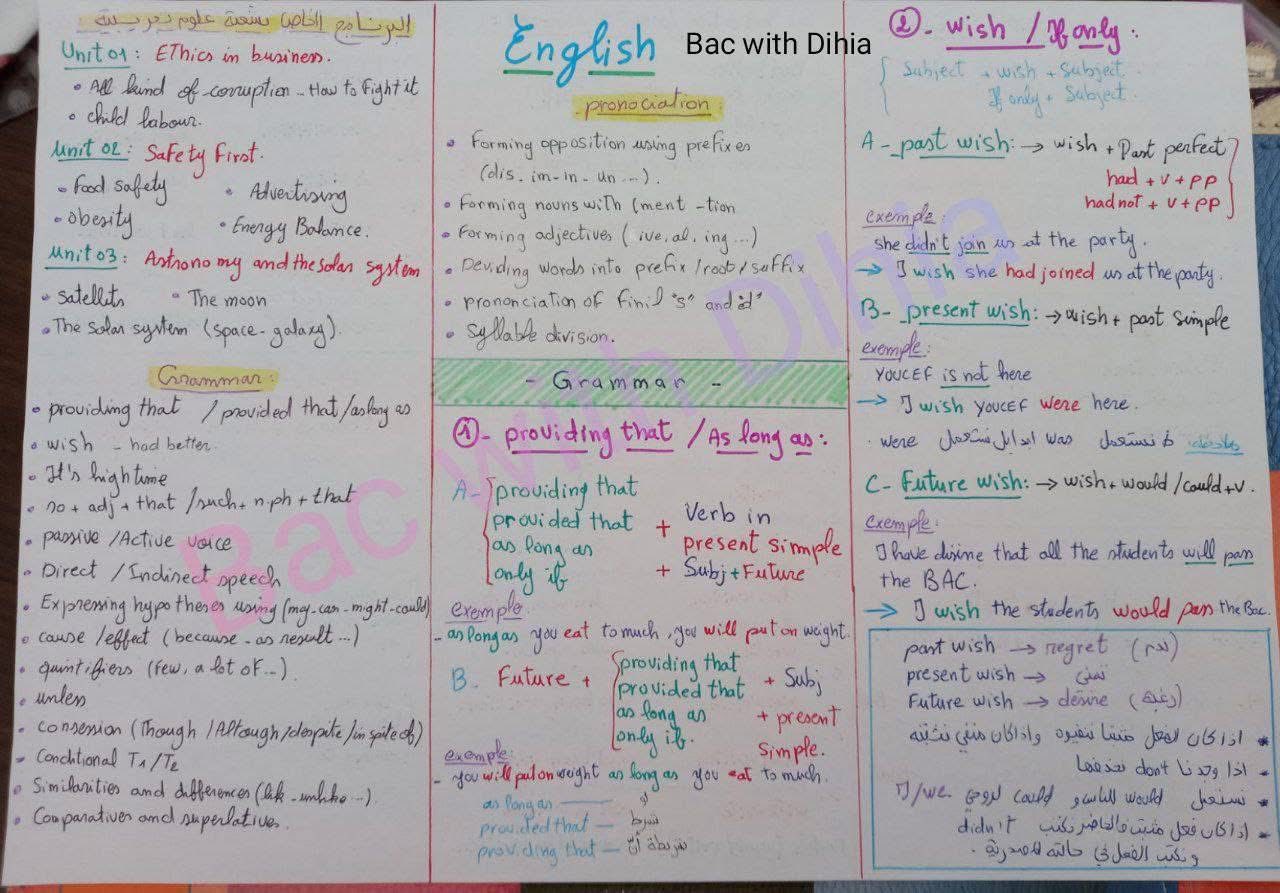 البرنامج الخاص بشعبة علوم تجريبية
Unit 01: Ethics in business.
• All kind of corruption - How to Fight it
• child labour.
Unit 02: Safety First.
• Food safety • Advertising
• obesity • Energy Balance.
Unit 03: Astronomy and the solar system
• satellits • The moon
• The solar system (space-galaxy).
Grammar:
• providing that / provided that / as long as
• wish - had better.
• It's high time
• so + adj + that / such + n.ph + that
• passive / Active voice
• Direct / Indirect speech
• Expressing hypotheses using (my-can-might-could)
• cause / effect (because - as result ...)
• quintifiers (few, a lot of...)
• unless
• consession (Though / Altough / despite / in spite of)
• Conditional T1 / T2
• Similarities and differences (like - unlike ...)
• Comparatives and superlatives.
English Bac with Dihia
pronociation:
• Forming opposition using prefixes
(dis - im - in - un ...).
• Forming nouns with (ment - tion
• Forming adjectives (ive, al, ing ...)
• Deviding words into prefix / root / suffix
• prononciation of finil "s" and "d"
• Syllable division.
- Grammar -
1 - providing that / As long as:
A - providing that
provided that
as long as
only if
+ Verb in
present simple
+ Subj + Future
exemple
- as long as you eat to much, you will put on weight.
B. Future +
providing that
provided that
as long as
only if.
+ Subj
+ present
simple.
exemple:
- you will put on weight as long as you eat to much.
as long as — لو
provided that — شرط
providing that — شريطة أن
2 - wish / If only:
Subject + wish + Subject.
If only + Subject.
A - past wish: → wish + Past perfect
had + v + pp
had not + v + pp
exemple:
she didn't join us at the party.
→ I wish she had joined us at the party.
B - present wish: → wish + past simple
exemple:
YOUCEF is not here
→ I wish YOUCEF were here.
ملاحظة: لا نستعمل was ابدا بل نستعمل were.
C - Future wish: → wish + would / could + v.
exemple:
I have disire that all the students will pass
the BAC.
→ I wish the students would pass the Bac.
past wish → regret (ندم)
present wish → تمني
Future wish → desire (رغبة)
• اذا كان الفعل مثبتا ننفيه واذا كان منفي نثبته
• اذا وجدنا don't نحذفها
• نستعمل would للناس و could لروحي I/we.
• اذا كان فعل مثبت فالحاضر نكتب didn't
ونكتب الفعل في حالته المصدرية.
Bac with Dihia